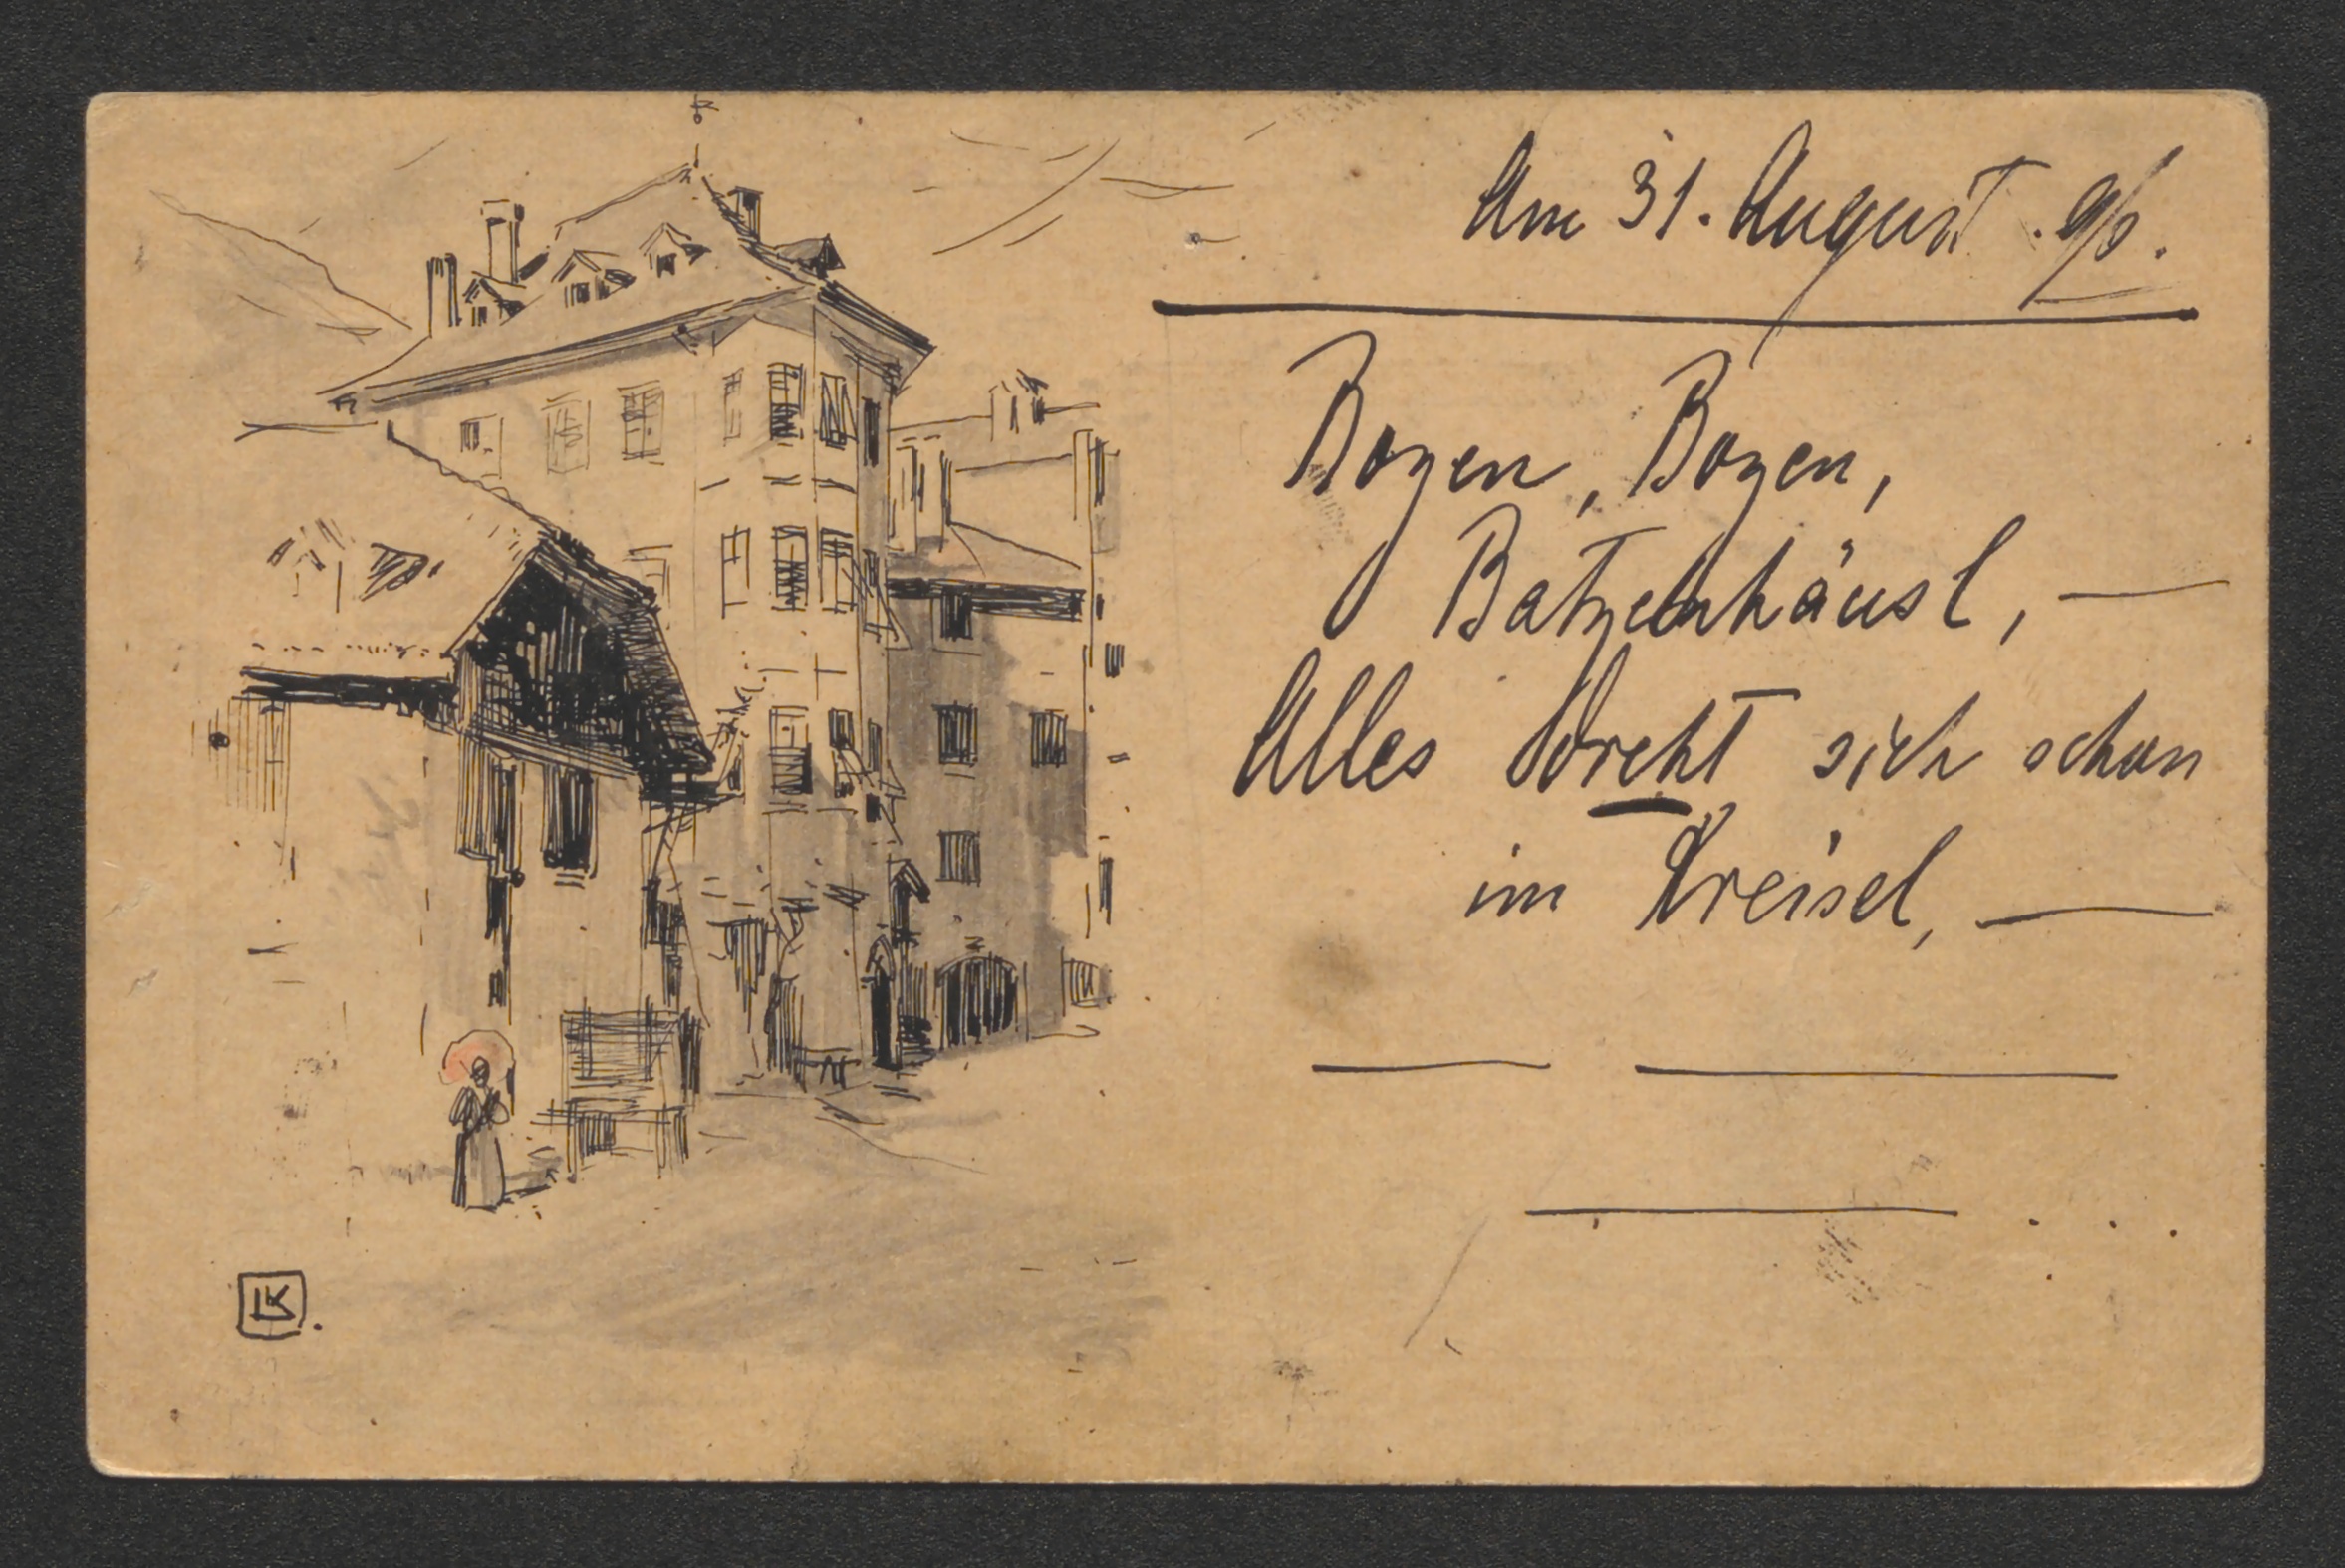 Am 31. August .96.
Bozen, Bozen,
Batzenhäusl, —
Alles dreht sich schon
im Kreisel, —
LK.